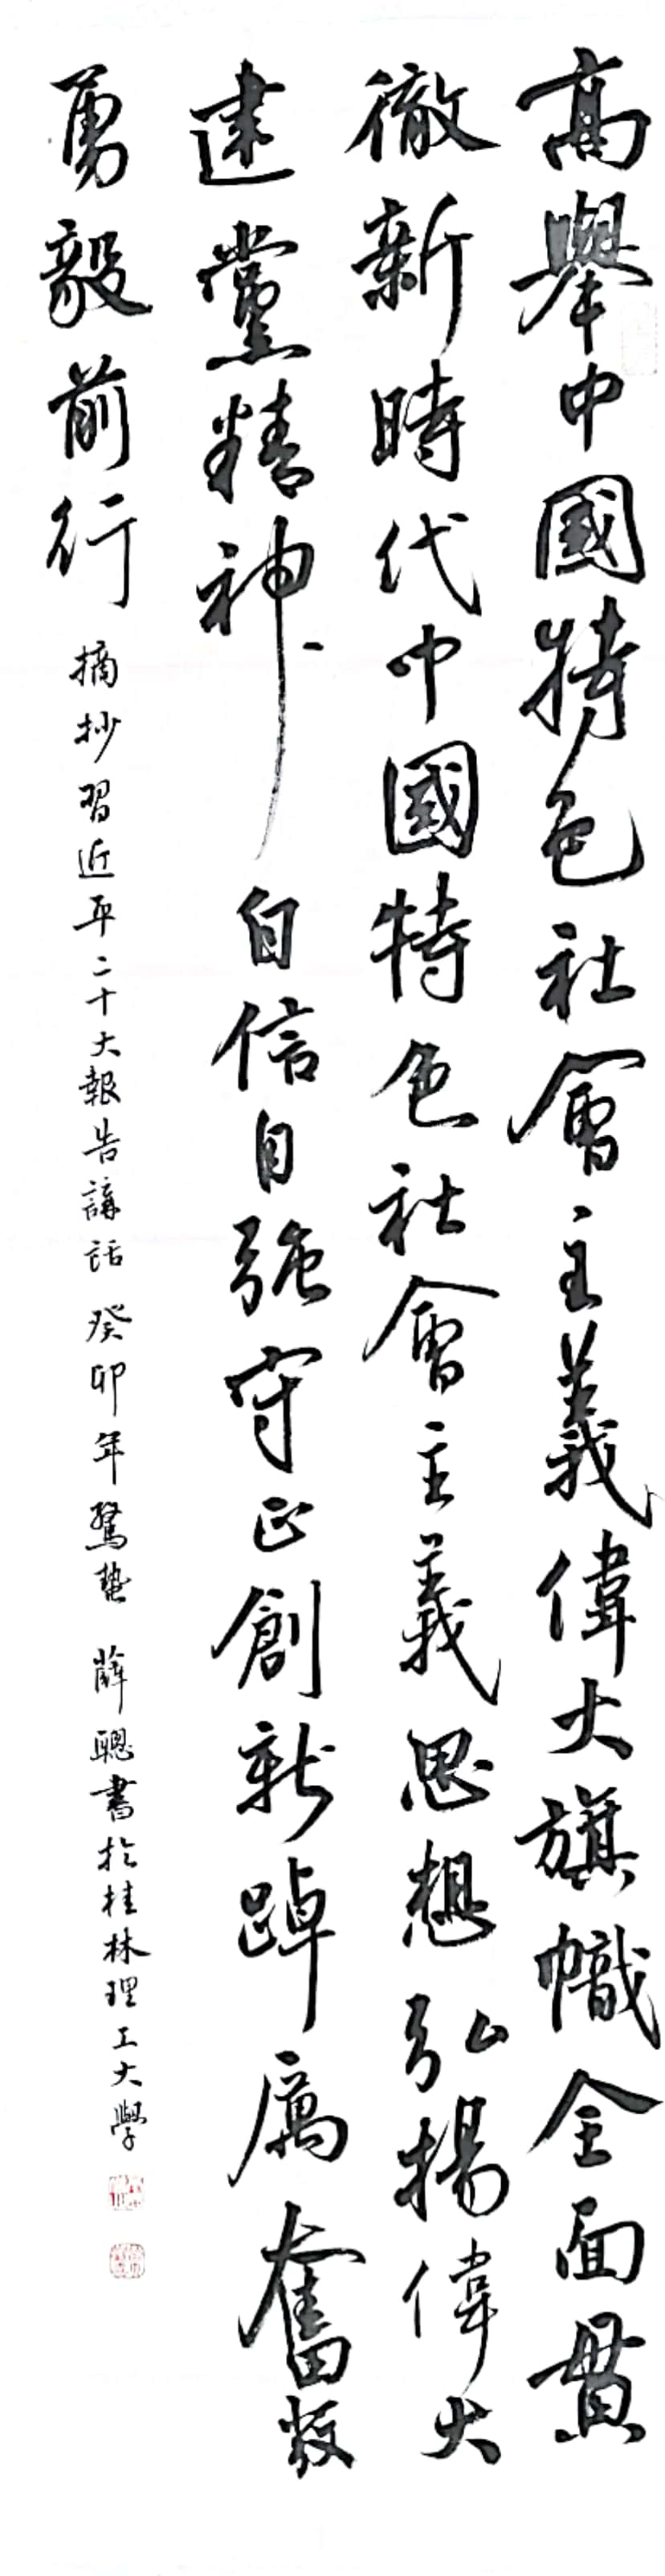 高舉中國特色社會主義偉大旗幟全面貫
徹新時代中國特色社會主義思想弘揚偉大
建黨精神自信自強守正創新踔厲奮發
勇毅前行
摘抄習近平二十大報告講話 癸卯年驚蟄 薛聰書於桂林理工大學